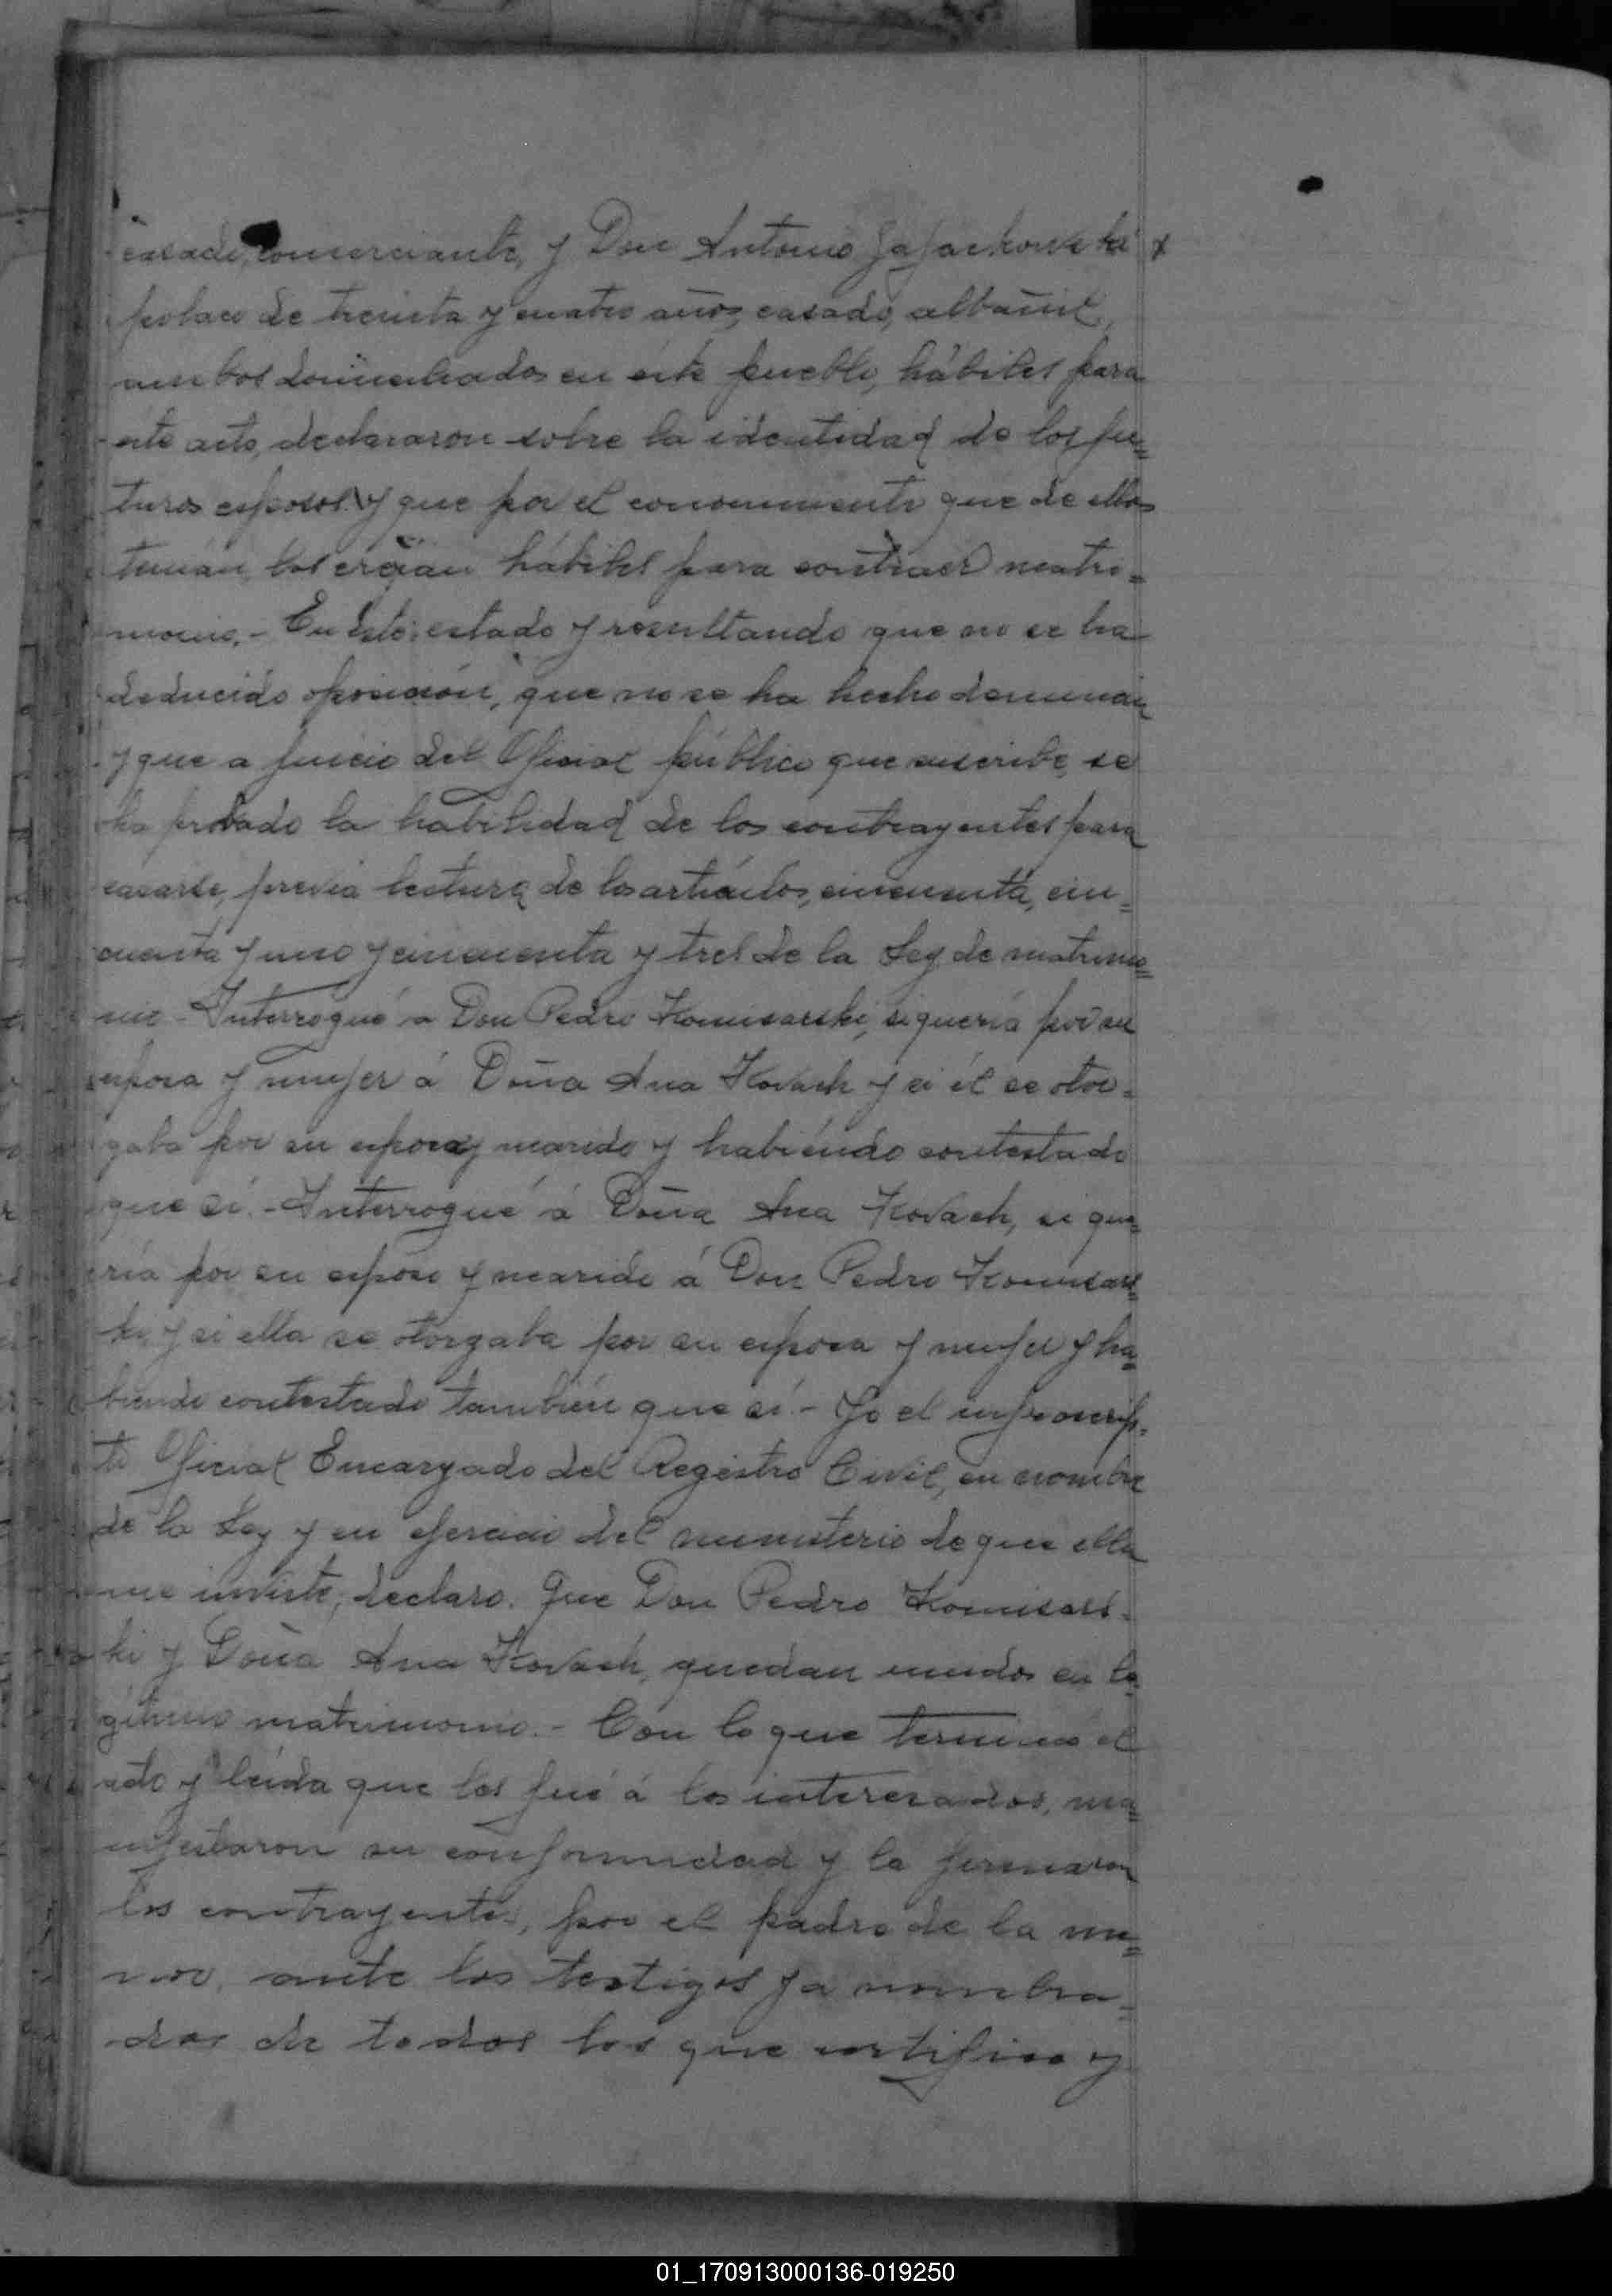 casado, comerciante, y Don Antonio
polaco de treinta y cuatro años, casado, albañil,
ambos domiciliados en éste pueblo, hábiles para
éste acto, declararon sobre la identidad de los fu=
turos esposos y que por el conocimiento que de ellos
tenían, los creían hábiles para contraer matri=
monio.- En éste estado y resultando que no se ha
deducido oposición, que no se ha hecho denuncia
y que a juicio del Oficial público que suscribe, se
ha probado la habilidad de los contrayentes para
casarse, previa lectura de los artículos, cincuenta, cin=
cuenta y uno y cincuenta y tres de la Ley de matrimo=
nio - Interrogué a Don Pedro Komisarski, si quería por su
esposa y mujer á Doña Ana Kovach y si él se otor=
gaba por su esposo y marido y habiéndo contestado
que sí.- Interrogué á Doña Ana Kovach, si que=
ría por su esposo y marido á Don Pedro Komisars=
ki, y si ella se otorgaba por su esposa y mujer y ha=
biendo contestado también que sí.- Yo el infrascrip=
to Oficial Encargado del Registro Civil, en nombre
de la Ley y en ejercicio del ministerio de que ella
me inviste, declaro. Que Don Pedro Komisars=
ki y Doña Ana Kovach, quedan unidos en le
gítimo matrimonio.- Con lo que terminó el
acto y leída que les fué á los interesados, ma=
nifestaron su conformidad y la firmaron
los contrayentes, por el padre de la me=
nor, ante los testigos ya nombra=
dos de todos los que certifico y
01_170913000136-019250